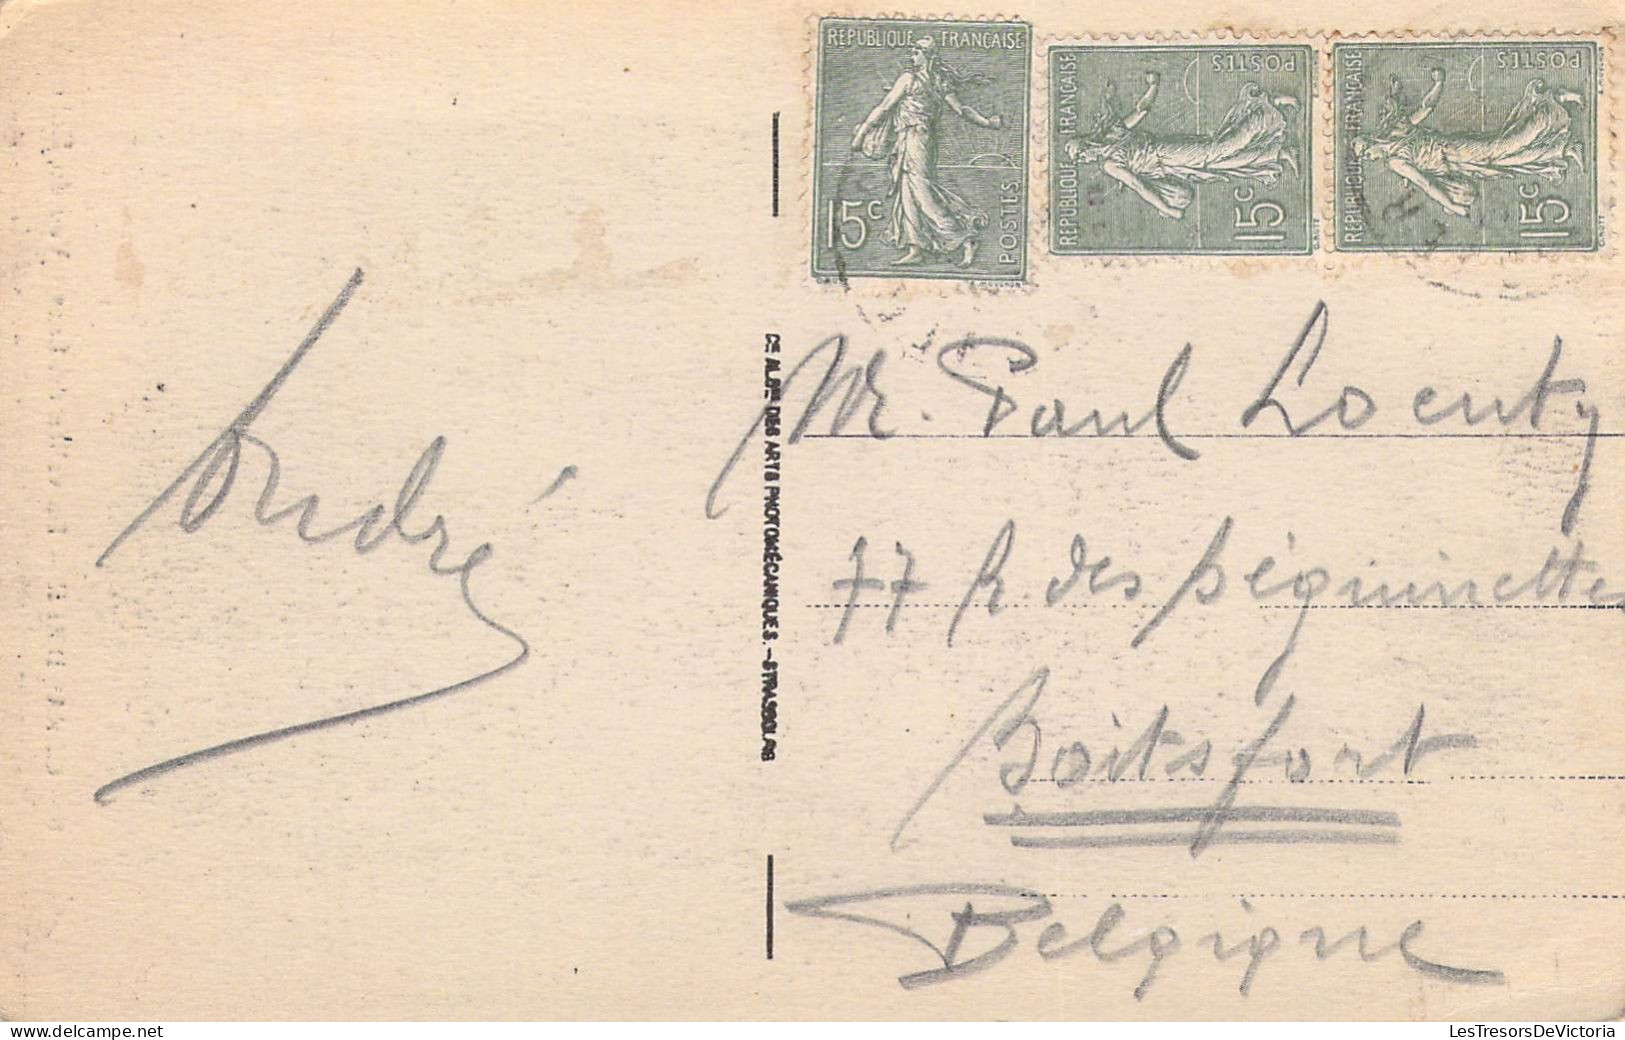 RÉPUBLIQUE FRANÇAISE
15c
POSTES
RÉPUBLIQUE FRANÇAISE
15c
POSTES
RÉPUBLIQUE FRANÇAISE
15c
POSTES
André
Cie ALSne DES ARTS PHOTOMÉCANIQUES. - STRASBOURG
M. Paul
77 R des Béguinettes
Boitsfort
Belgique
LesTresorsDeVictoria